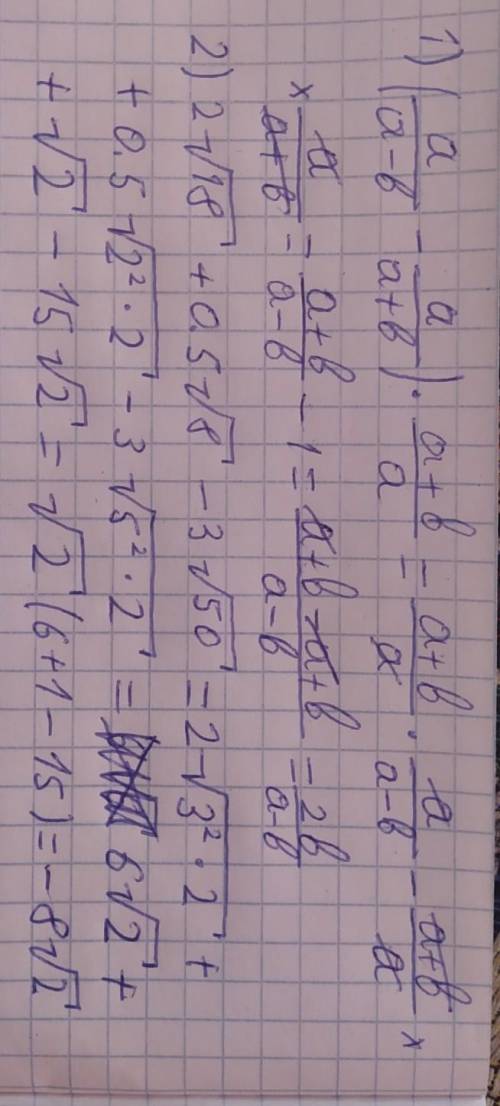 1) (a/(a-b) - a/(a+b)) · (a+b)/a = (a+b)/a · a/(a-b) - (a+b)/a ×
× a/(a+b) = (a+b)/(a-b) - 1 = (a+b-a+b)/(a-b) = 2b/(a-b)
2) 2√18 + 0.5√8 - 3√50 = 2√(3²·2) +
+ 0.5√(2²·2) - 3√(5²·2) = 6√2 +
+ √2 - 15√2 = √2(6+1-15) = -8√2